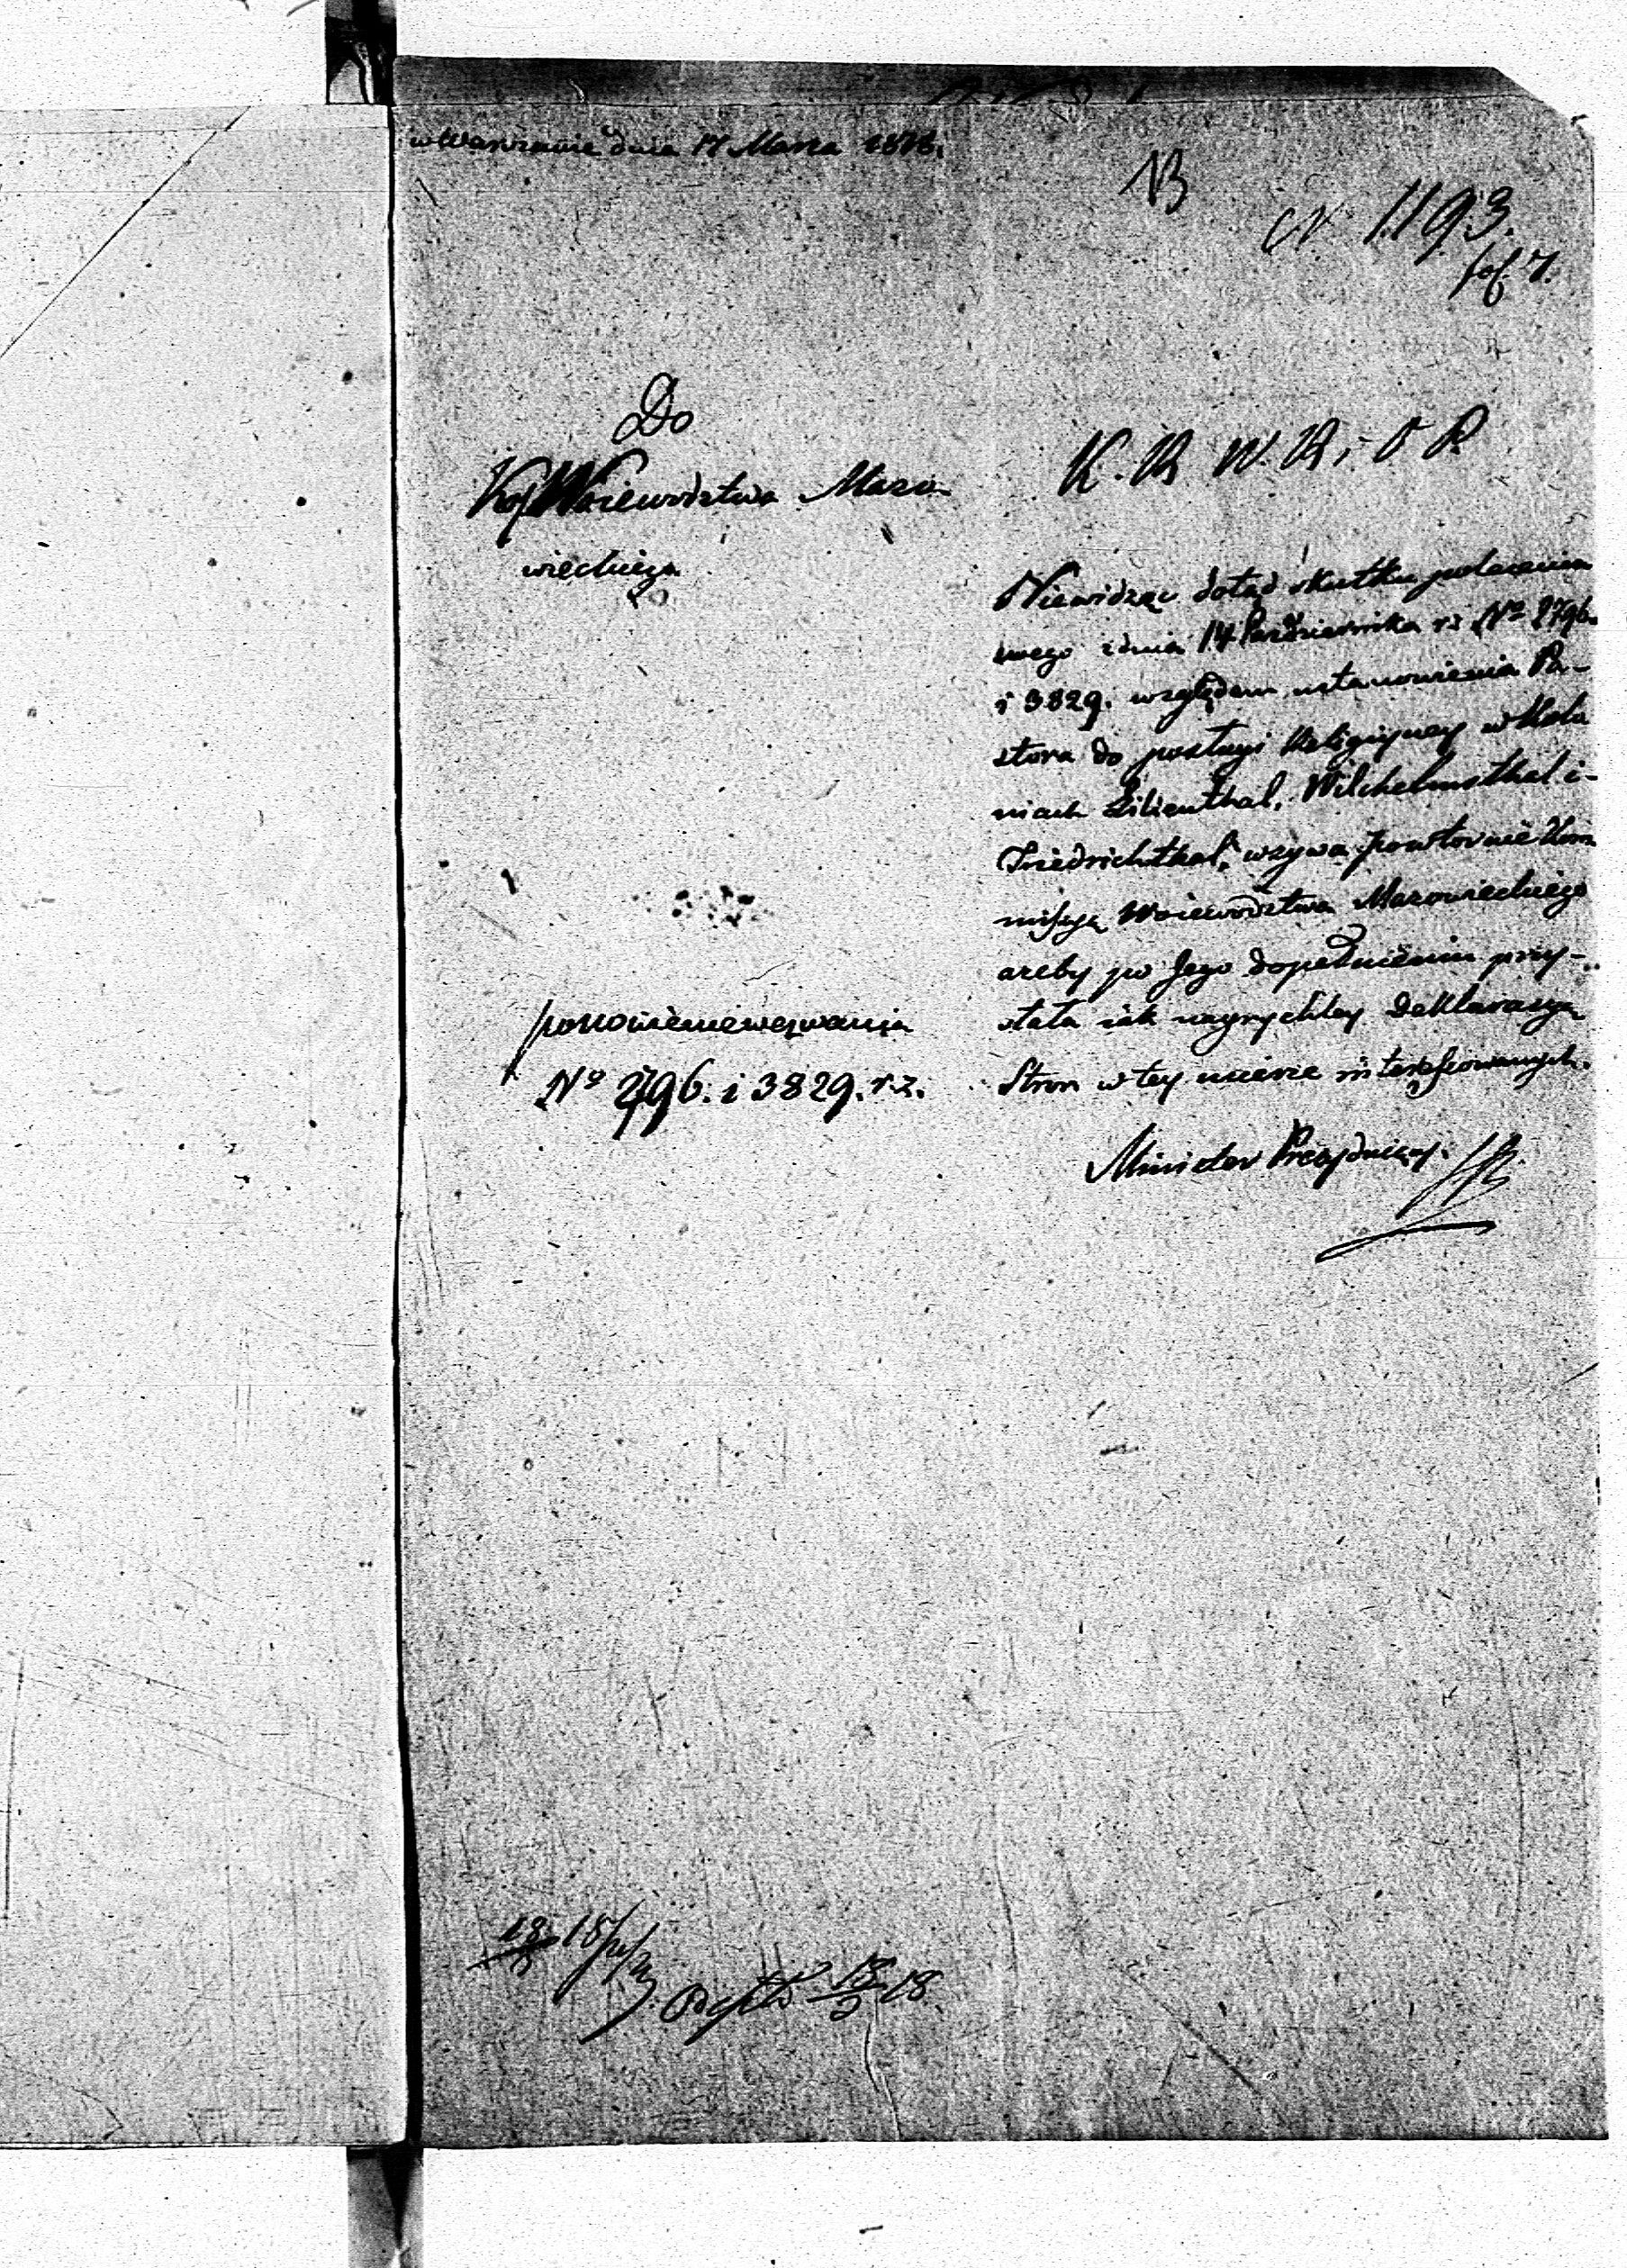 w Warszawie dnia 17 Marca 1818.
N 1193.
Do
Woiewodztwa Mazo-
wieckiego
K. R. W. R. i O. P.
Niewidząc dotąd skutku polecenia
swego z dnia 14 Października r. z. No 2796.
i 3829. względem ustanowienia Pa-
stora do posługi Religijney w Kolo
niach Lilienthal, Wilchelmsthal i
Friedrichsthal, wzywa powtornie Kom
missyą Woiewodztwa Mazowieckiego
ażeby po Jego dopełnieniu przy-
słała iak nayrychley Deklaracyą
Stron w tey mierze interessowanych.
ponowienie wezwania
No 2796. i 3829. r. z.
Minister Prezyduiący
18